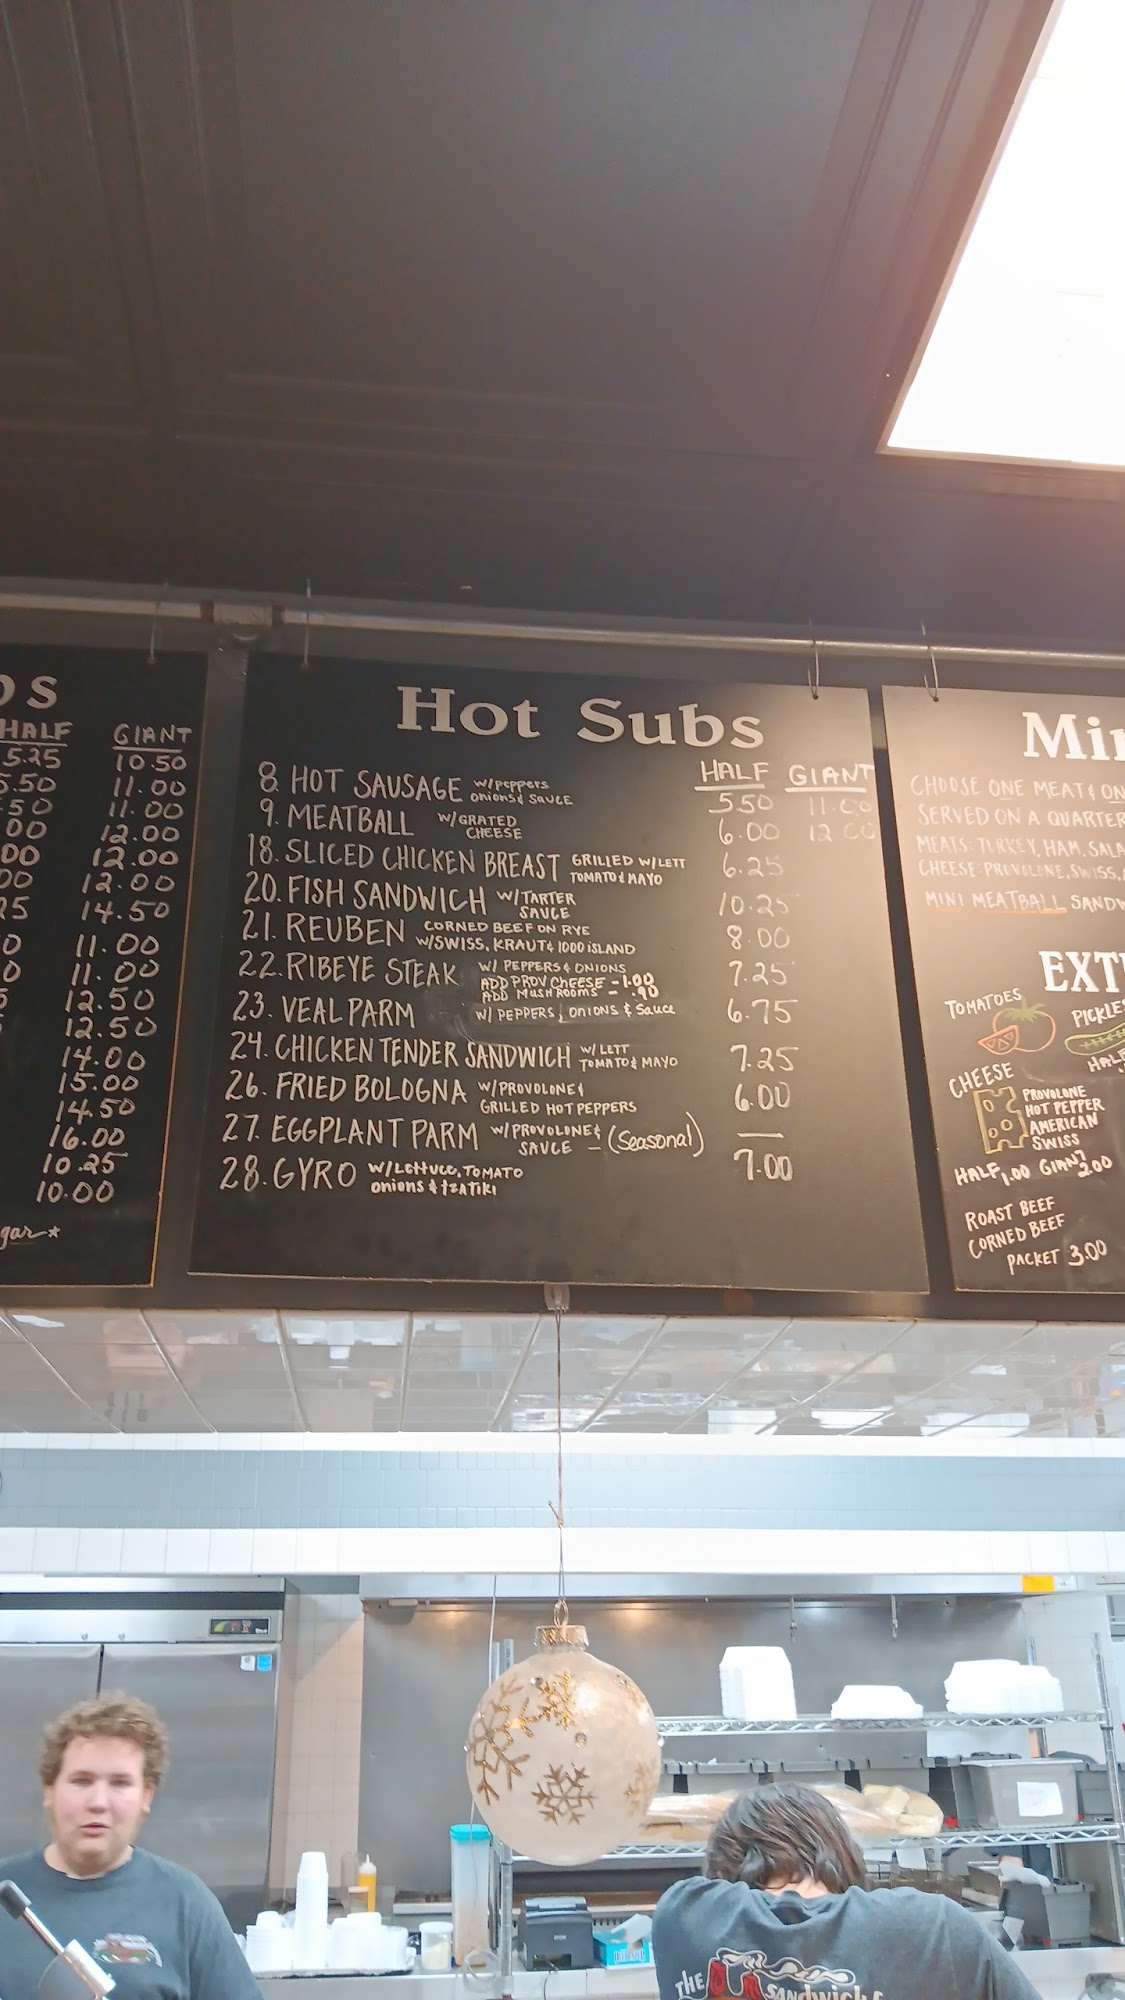 HALF GIANT
5.25 10.50
5.50 11.00
.50 11.00
00 12.00
00 12.00
00 12.00
25 14.50
0 11.00
0 11.00
12.50
12.50
14.00
15.00
14.50
16.00
10.25
10.00
Hot Subs
HALF GIANT
8. HOT SAUSAGE w/peppers onions & sauce 5.50 11.00
9. MEATBALL W/GRATED CHEESE 6.00 12.00
18. SLICED CHICKEN BREAST GRILLED W/LETT TOMATO & MAYO 6.25
20. FISH SANDWICH W/TARTER SAUCE 10.25
21. REUBEN CORNED BEEF ON RYE W/SWISS, KRAUT & 1000 iSLAND 8.00
22. RIBEYE STEAK W/ PEPPERS & ONIONS 7.25
ADD PROV CHEESE - 1.00
ADD MUSHROOMS - .90
23. VEAL PARM W/ PEPPERS, ONIONS & Sauce 6.75
24. CHICKEN TENDER SANDWICH W/ LETT TOMATO & MAYO 7.25
26. FRIED BOLOGNA W/PROVOLONE & GRILLED HOT PEPPERS 6.00
27. EGGPLANT PARM W/PROVOLONE & SAUCE - (Seasonal) —
28. GYRO W/Lettuce, TOMATO onions & tzatiki 7.00
CHOOSE ONE MEAT &
SERVED ON A QUARTER
MEATS: TURKEY, HAM, SALA
CHEESE: PROVOLONE, SWISS,
MINI MEATBALL SANDW
TOMATOES
PICKLES
HALF
CHEESE
PROVOLONE
HOT PEPPER
AMERICAN
SWISS
HALF 1.00 GIANT 2.00
ROAST BEEF
CORNED BEEF
PACKET 3.00
THE
SANDWICH